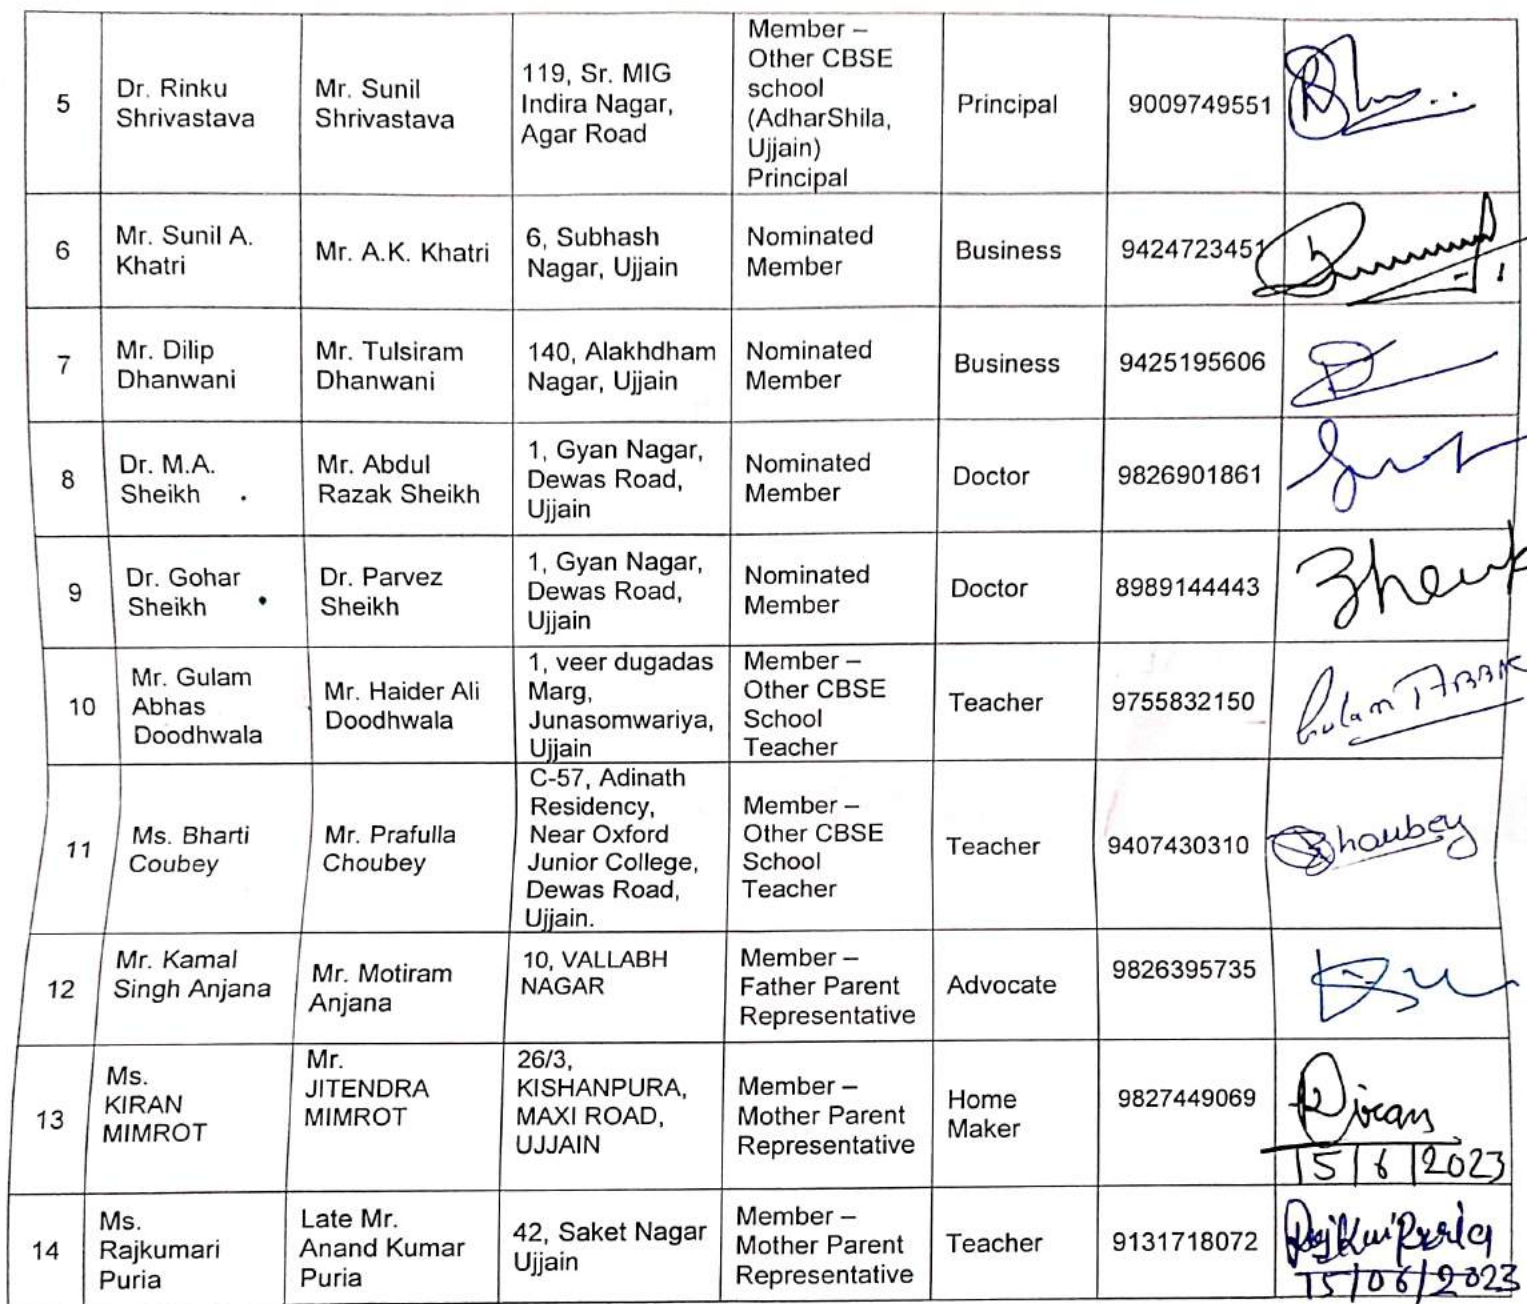 5
Dr. Rinku
Shrivastava
Mr. Sunil
Shrivastava
119, Sr. MIG
Indira Nagar,
Agar Road
Member –
Other CBSE
school
(AdharShila,
Ujjain)
Principal
Principal
9009749551
6
Mr. Sunil A.
Khatri
Mr. A.K. Khatri
6, Subhash
Nagar, Ujjain
Nominated
Member
Business
9424723451
7
Mr. Dilip
Dhanwani
Mr. Tulsiram
Dhanwani
140, Alakhdham
Nagar, Ujjain
Nominated
Member
Business
9425195606
8
Dr. M.A.
Sheikh
Mr. Abdul
Razak Sheikh
1, Gyan Nagar,
Dewas Road,
Ujjain
Nominated
Member
Doctor
9826901861
9
Dr. Gohar
Sheikh
Dr. Parvez
Sheikh
1, Gyan Nagar,
Dewas Road,
Ujjain
Nominated
Member
Doctor
8989144443
10
Mr. Gulam
Abhas
Doodhwala
Mr. Haider Ali
Doodhwala
1, veer dugadas
Marg,
Junasomwariya,
Ujjain
Member –
Other CBSE
School
Teacher
Teacher
9755832150
11
Ms. Bharti
Coubey
Mr. Prafulla
Choubey
C-57, Adinath
Residency,
Near Oxford
Junior College,
Dewas Road,
Ujjain.
Member –
Other CBSE
School
Teacher
Teacher
9407430310
12
Mr. Kamal
Singh Anjana
Mr. Motiram
Anjana
10, VALLABH
NAGAR
Member –
Father Parent
Representative
Advocate
9826395735
13
Ms.
KIRAN
MIMROT
Mr.
JITENDRA
MIMROT
26/3,
KISHANPURA,
MAXI ROAD,
UJJAIN
Member –
Mother Parent
Representative
Home
Maker
9827449069
Kiran
15/6/2023
14
Ms.
Rajkumari
Puria
Late Mr.
Anand Kumar
Puria
42, Saket Nagar
Ujjain
Member –
Mother Parent
Representative
Teacher
9131718072
15/06/2023